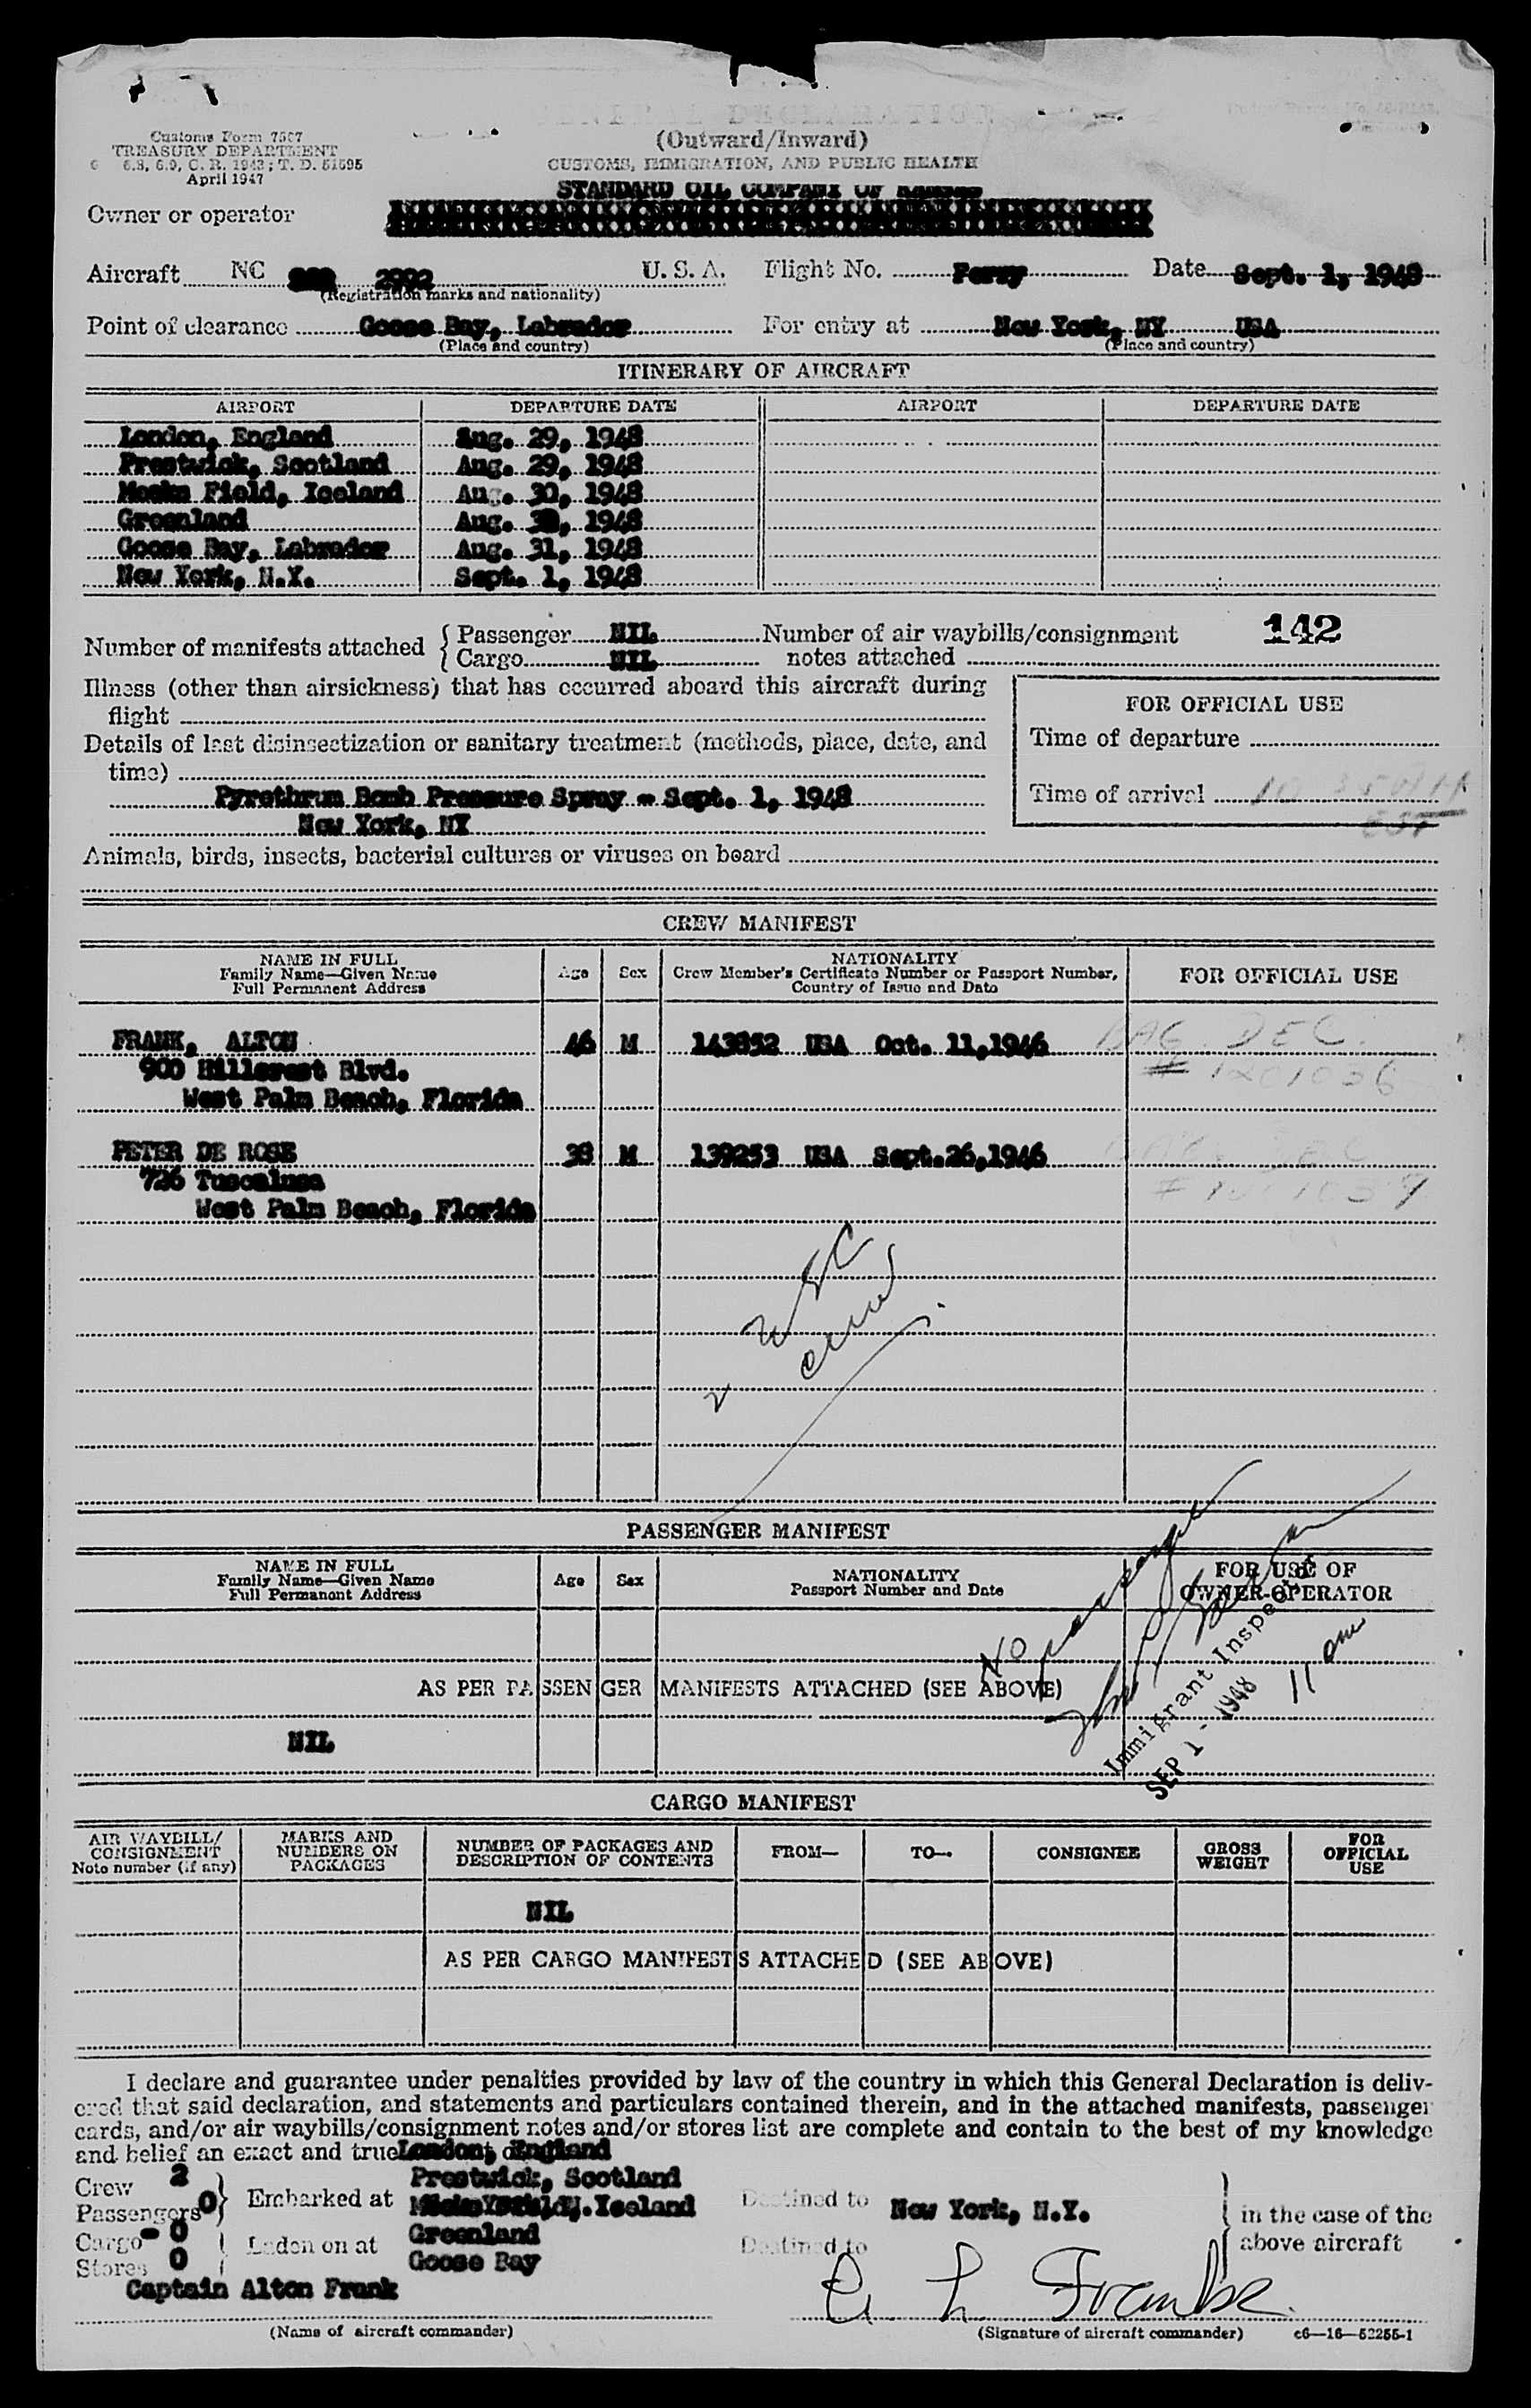 GENERAL DECLARATION
(Outward/Inward)
CUSTOMS, IMMIGRATION, AND PUBLIC HEALTH
Customs Form 7507
TREASURY DEPARTMENT
6.8, 6.9, C. R. 1943; T. D. 51595
April 1947
STANDARD OIL COMPANY OF
Owner or operator
Aircraft NC 2992 U. S. A. Flight No. Ferry Date Sept. 1, 1948
(Registration marks and nationality)
Point of clearance Goose Bay, Labrador For entry at New York, NY USA
(Place and country) (Place and country)
ITINERARY OF AIRCRAFT
AIRPORT DEPARTURE DATE AIRPORT DEPARTURE DATE
London, England Aug. 29, 1948
Prestwick, Scotland Aug. 29, 1948
Meeks Field, Iceland Aug. 30, 1948
Greenland Aug. 1948
Goose Bay, Labrador Aug. 31, 1948
New York, N.Y. Sept. 1, 1948
Number of manifests attached { Passenger NIL Number of air waybills/consignment 142
Cargo NIL notes attached
Illness (other than airsickness) that has occurred aboard this aircraft during
flight
FOR OFFICIAL USE
Details of last disinsectization or sanitary treatment (methods, place, date, and
time)
Time of departure
Pyrethrum Bomb Pressure Spray - Sept. 1, 1948
Time of arrival
EST
New York, NY
Animals, birds, insects, bacterial cultures or viruses on board
CREW MANIFEST
NAME IN FULL
Family Name—Given Name
Full Permanent Address
Age Sex
NATIONALITY
Crew Member's Certificate Number or Passport Number,
Country of Issue and Date
FOR OFFICIAL USE
FRANK, ALTON 46 M 143852 USA Oct. 11,1946 BAG. DEC.
900 Hillcrest Blvd. # 1201036
West Palm Beach, Florida
PETER DE ROSE 38 M 139253 USA Sept.26,1946
726 Tuscalusa
West Palm Beach, Florida
2 USC
PASSENGER MANIFEST
NAME IN FULL
Family Name—Given Name
Full Permanent Address
Age Sex
NATIONALITY
Passport Number and Date
FOR USE OF
OWNER-OPERATOR
No passengers
AS PER PASSENGER MANIFESTS ATTACHED (SEE ABOVE)
Immigrant Inspector
SEP 1 - 1948
11 am
NIL
CARGO MANIFEST
AIR WAYBILL/
CONSIGNMENT
Note number (if any)
MARKS AND
NUMBERS ON
PACKAGES
NUMBER OF PACKAGES AND
DESCRIPTION OF CONTENTS
FROM— TO— CONSIGNEE
GROSS
WEIGHT
FOR
OFFICIAL
USE
NIL
AS PER CARGO MANIFESTS ATTACHED (SEE ABOVE)
I declare and guarantee under penalties provided by law of the country in which this General Declaration is deliv-
ered that said declaration, and statements and particulars contained therein, and in the attached manifests, passenger
cards, and/or air waybills/consignment notes and/or stores list are complete and contain to the best of my knowledge
and belief an exact and true London, England
Crew 2 Prestwick, Scotland
Passengers 0 } Embarked at Iceland Destined to New York, N.Y. } in the case of the
Cargo - 0 Greenland
Stores 0 } Laden on at Goose Bay Destined to above aircraft
Captain Alton Frank
(Name of aircraft commander) (Signature of aircraft commander) c6—16—52255-1